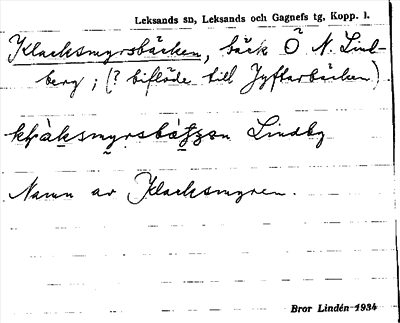 Leksands sn, Leksands och Gagnefs tg, Kopp. l.
Klacksmyrsbäcken, bäck Ö N. Lind-
berg; (? biflöde till Jyftarbäcken).
Lindbg
Namn av Klacksmyren.
Bror Lindén 1934